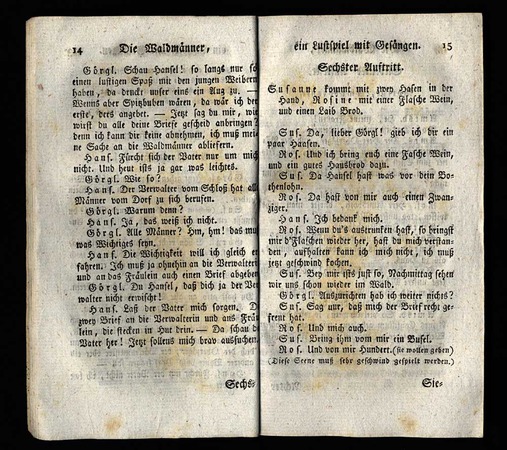 14 Die Waldmänner,
Görgl. Schau Hansel! so langs nur so
einen lustigen Spaß mit den jungen Weibern
haben, da druckt unser eins ein Aug zu. —
Wenns aber Spitzbuben wären, da wär ich der
erste, ders angebet. — Jetzt sag du mir, wie
wirst du alle deine Briefe gescheid anbringen?
denn ich kann dir keine abnehmen, ich muß mei-
ne Sache an die Waldmänner abliefern.
Hans. Fürcht sich der Vater nur um mich
nicht. Und heut ists ja gar was leichtes.
Görgl. Wie so?
Hans. Der Verwalter vom Schloß hat all
Männer vom Dorf zu sich berufen.
Görgl. Warum denn?
Hans. Ja, das weiß ich nicht.
Görgl. Alle Männer? Hm, hm! das muß
was Wichtiges seyn.
Hans. Die Wichtigkeit will ich gleich er-
fahren. Ich muß ja ohnehin an die Verwalterin
und an das Fräulein auch einen Brief abgeben
Görgl. Du Hansel, daß dich ja der Ver-
walter nicht erwischt!
Hans. Laß der Vater mich sorgen. D
zwey Brief an die Verwalterin und ans Fräu
lein, die stecken in Hut drin. — Da schau d
Vater her! Jetzt sollens mich brav aussuchen
Sechs-
ein Lustspiel mit Gesängen. 15
Sechster Auftritt.
Susanne kommt mit zwey Hasen in der
Hand, Rosine mit einer Flasche Wein,
und einen Laib Brod.
Sus. Da, lieber Görgl! gieb ich dir ein
paar Haasen.
Ros. Und ich bring euch eine Fasche Wein,
und ein gutes Hausbrod dazu.
Sus. Da Hansel hast was vor dein Bo-
thenlohn.
Ros. Da hast von mir auch einen Zwan-
ziger.
Hans. Ich bedank mich.
Ros. Wenn du's austrunken hast, so bringst
mir d'Flaschen wieder her, hast du mich verstan-
den, aufhalten kann ich mich nicht, ich muß
jetzt geschwind kochen.
Sus. Bey mir ists just so, Nachmittag sehen
wir uns schon wieder im Wald.
Görgl. Auszurichten hab ich weiter nichts?
Sus. Sag nur, daß mich der Brief recht ge-
freut hat.
Ros. Und mich auch.
Sus. Bring ihm vom mir ein Busel.
Ros. Und von mir Hundert. (sie wollen gehen)
(Diese Scene muß sehr geschwind gespielt werden.)
Sie-